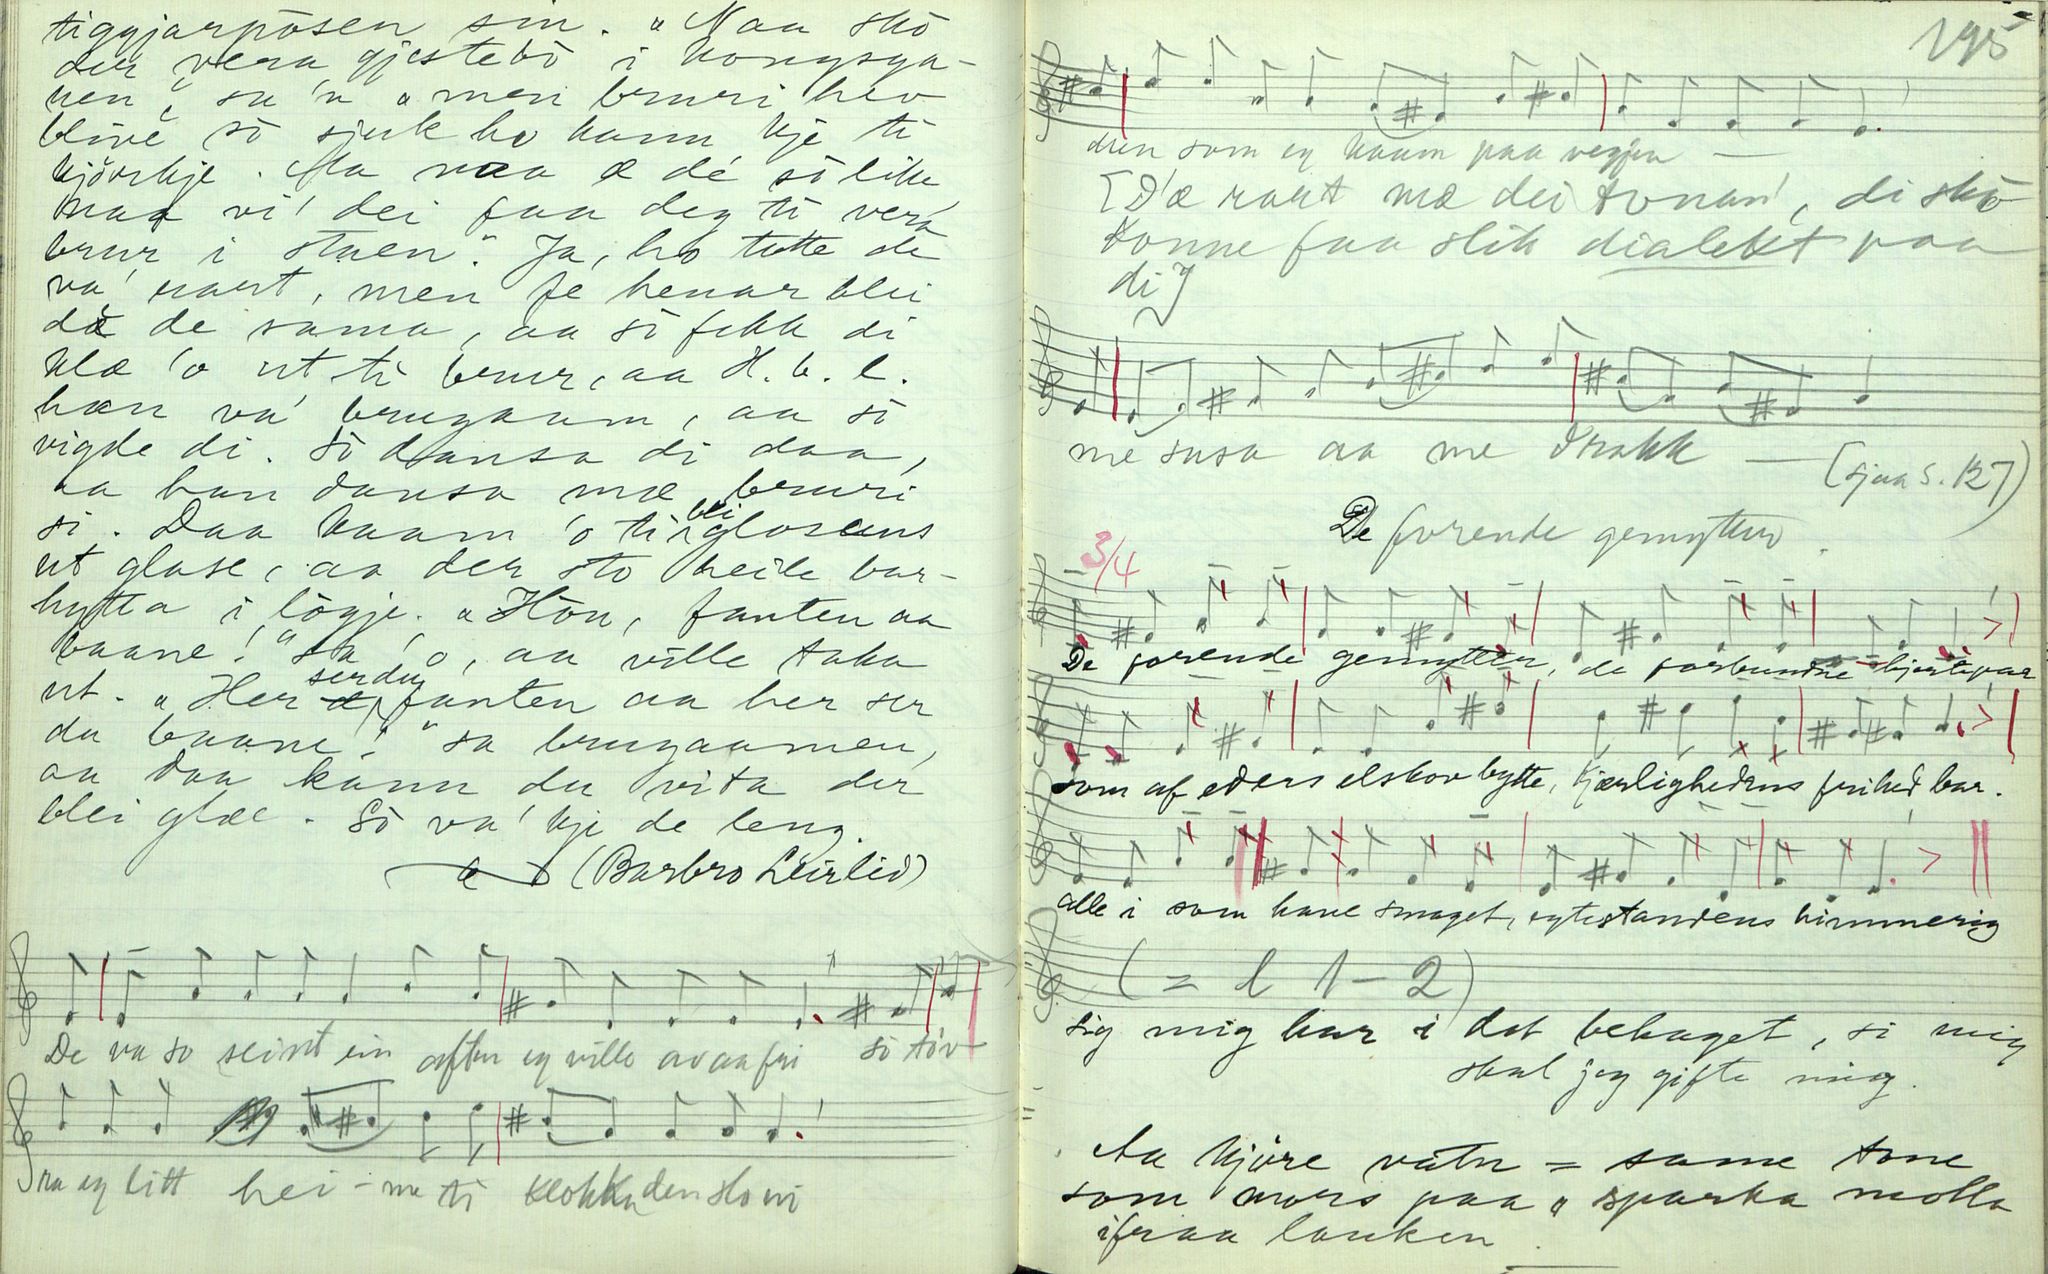 tiggjarpósen sin. "Naa skó
der vera gjestebó i kongsga-
ren", sa 'n "men bruri hev
blive só sjuk ho kann kje ti
kjórkje. Aa naa æ dé só like
naa vi' dei faa deg ti vera
brur i staen." Ja, ho totte de
va' rart, men fe henar blei
dæ de sama, aa só fekk di
klæ 'o ut ti brur, aa H. b. l.
han va' brugaam, aa só
vigde di. Só dansa di daa,
aa han dansa mæ bruri
si. Daa kaam 'o ti bli glosa
ut glase, aa der sto heile bar-
hytta i lógje. "Hón, fanten aa
baane!" sa 'o, aa ville taka
ut. "Her ser du fanten aa her ser
du baane!" sa brugaamen,
aa daa kann du vita der
blei glæe. Só va' kje de leng.
(Barbro Leirlid)
De va so seint ein aften eg ville av aa fri só tóv
ra eg litt hei-me ti klokka den slo ni
195
den som eg kaam paa vegjen —
[D'æ rart mæ dei tonan', di skó
konne faa slik dialekt paa
di]
me susa aa me drakk — (sjaa s. 127)
De forende gemytter.
3/4
De forende gemytter, de forbundne hjertepar
som af eders elskov bytte, kjærlighedens frihed bar.
alle i som have smaget, egtestandens himmerig
(= l 1-2)
sig mig har i det behaget, si mig
skal jeg gifte mig.
Aa kjóre vatn = same tone
som mors paa "sparka molla
ifraa lauken